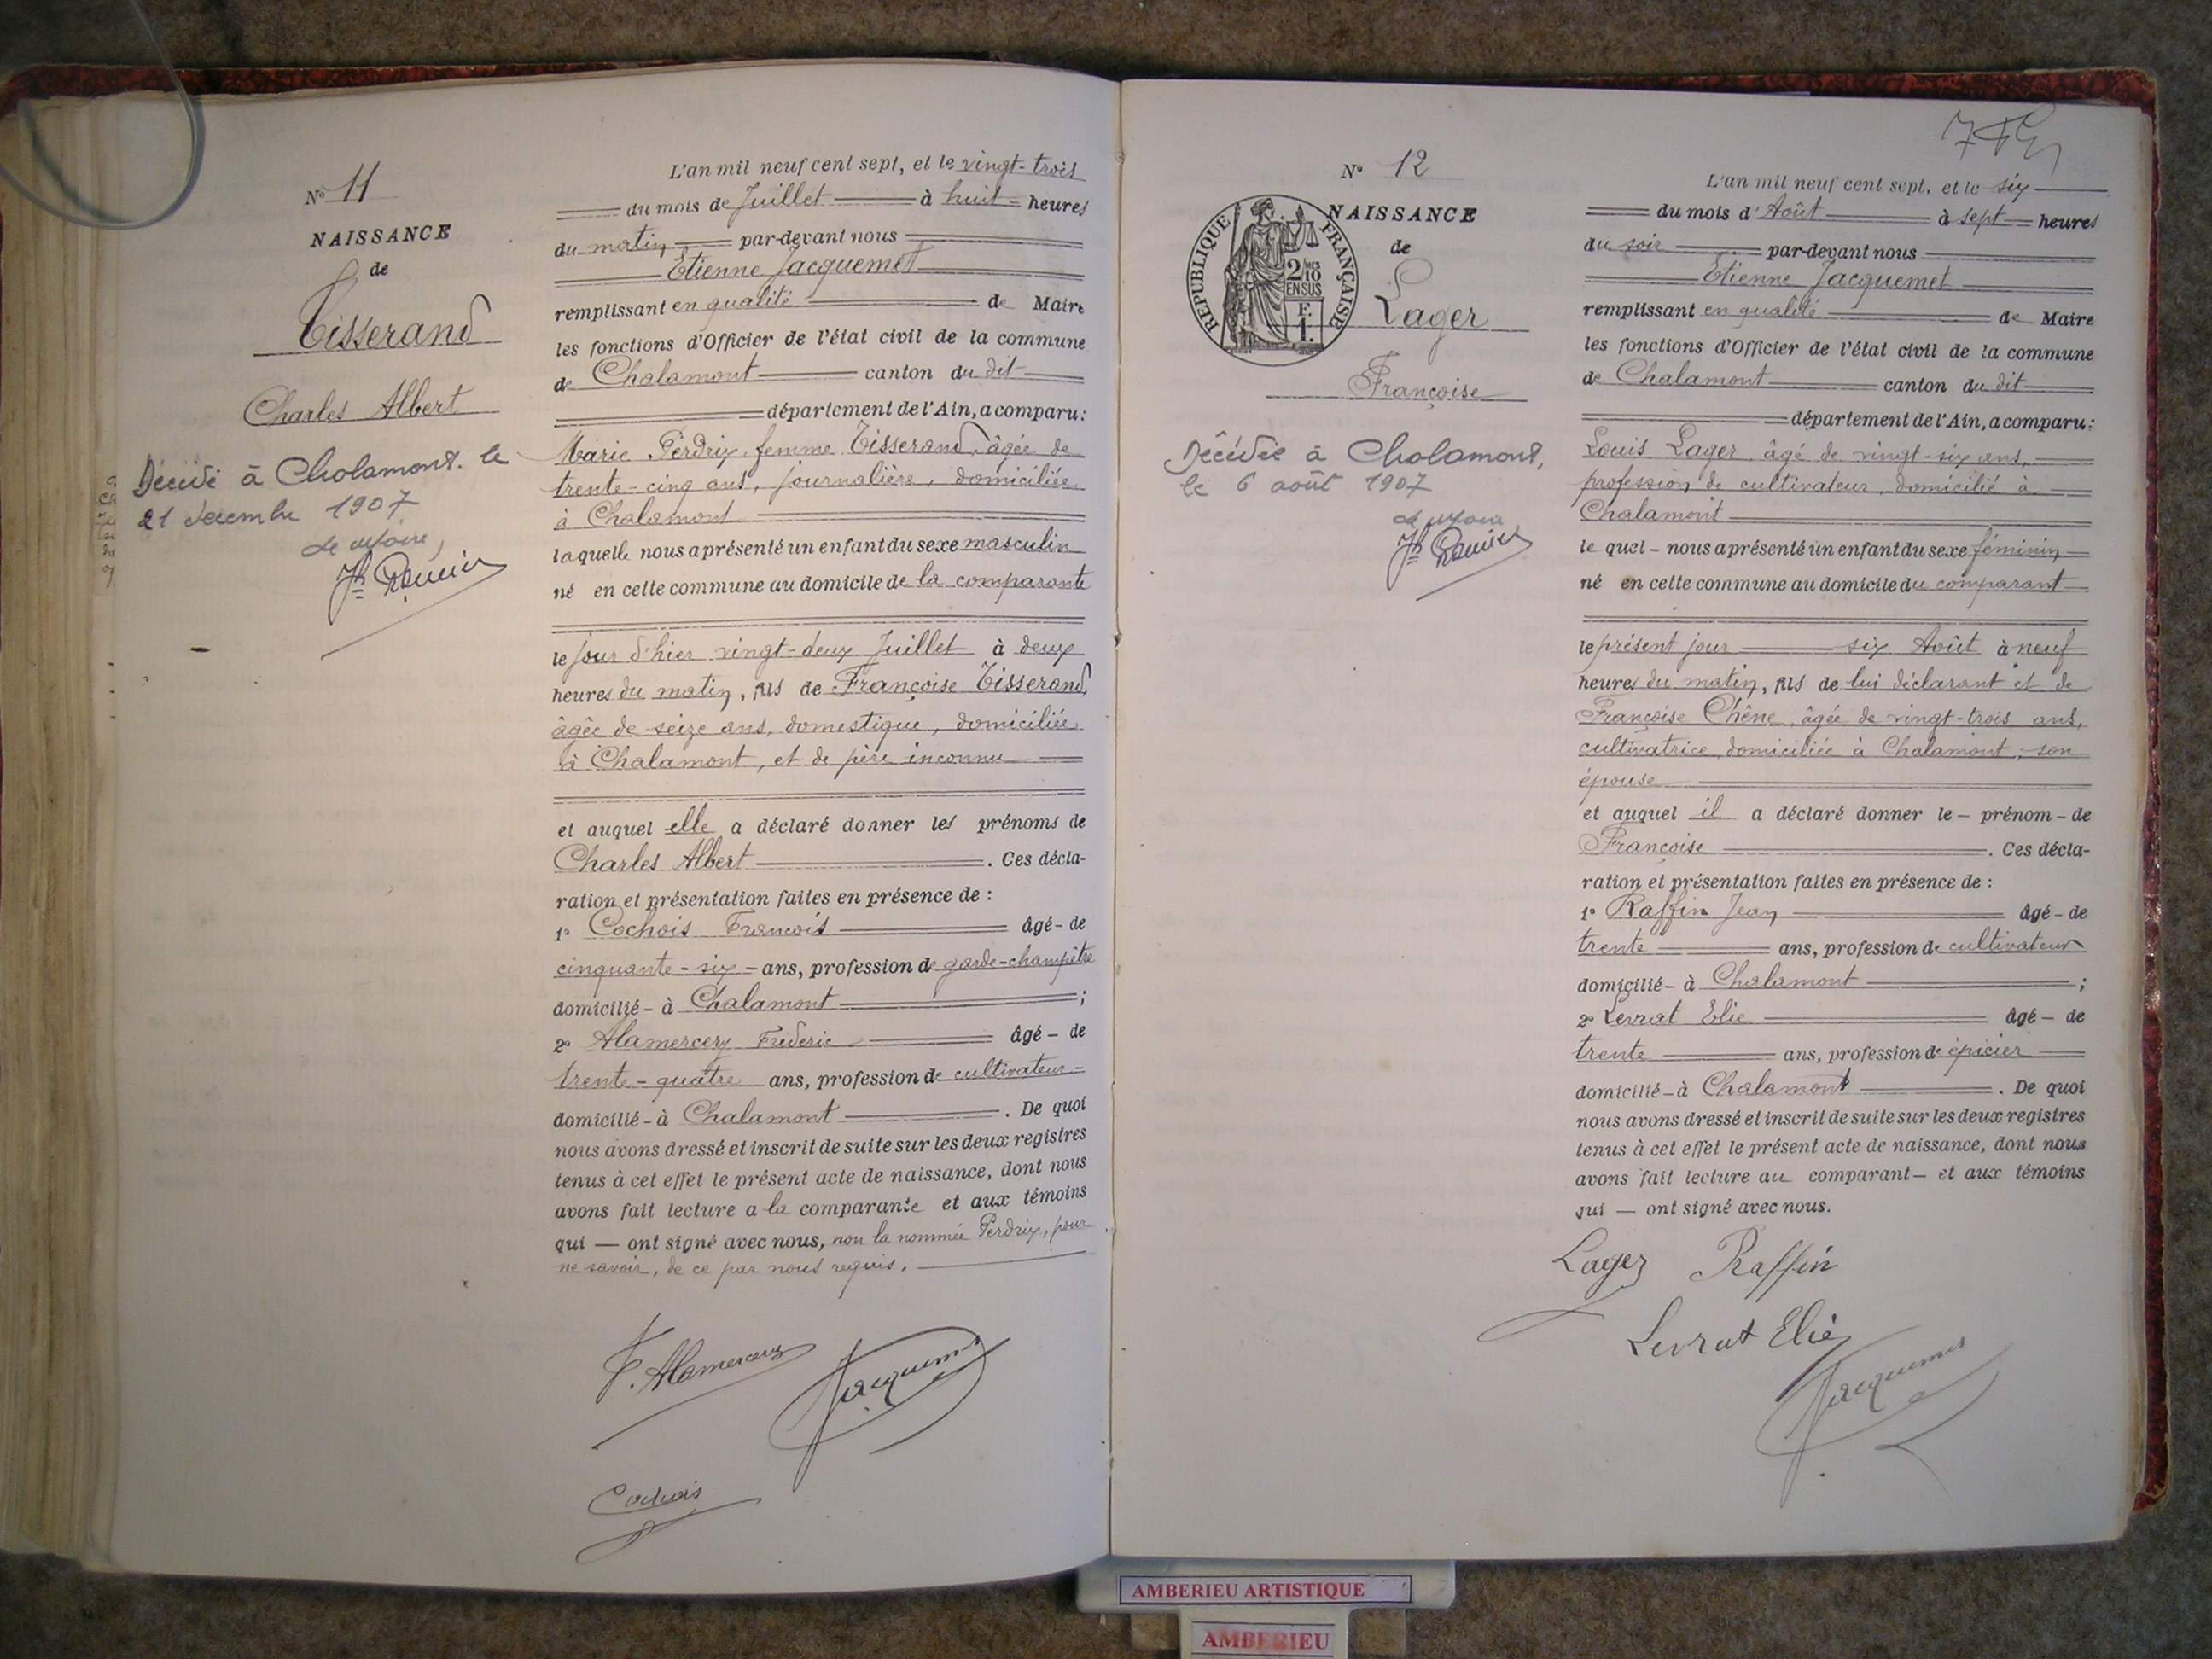 N° 11
NAISSANCE
de
Tisserand
Charles Albert
Décédé à Chalamont le
21 décembre 1907
Le Maire,
L'an mil neuf cent sept, et le vingt-trois
du mois de Juillet à huit heures
du matin par-devant nous
Etienne Jacquemet
remplissant en qualité de Maire
les fonctions d'Officier de l'état civil de la commune
de Chalamont canton du dit
département de l'Ain, a comparu:
Marie Perdrix, femme Tisserand, âgée de
trente-cinq ans, journalière, domiciliée
à Chalamont
laquelle nous a présenté un enfant du sexe masculin
né en cette commune au domicile de la comparante
le jour d'hier vingt-deux Juillet à deux
heures du matin, fils de Françoise Tisserand,
âgée de seize ans, domestique, domiciliée
à Chalamont, et de père inconnu
et auquel elle a déclaré donner les prénoms de
Charles Albert. Ces décla-
ration et présentation faites en présence de :
1° Cochois François âgé - de
cinquante-six - ans, profession de garde-champêtre
domicilié - à Chalamont ;
2° Alamercery Frédéric âgé - de
trente-quatre ans, profession de cultivateur
domicilié - à Chalamont. De quoi
nous avons dressé et inscrit de suite sur les deux registres
tenus à cet effet le présent acte de naissance, dont nous
avons fait lecture a la comparante et aux témoins
qui — ont signé avec nous, non la nommée Perdrix, pour
ne savoir, de ce par nous requis.
F. Alamercery Jacquemet
Cochois
N° 12
NAISSANCE
de
RÉPUBLIQUE FRANÇAISE
2/10 MES
EN SUS
F.
1.
Lager
Françoise
Décédée à Chalamont,
le 6 août 1907
Le Maire,
L'an mil neuf cent sept, et le six
du mois d'Août à sept heures
du soir par-devant nous
Etienne Jacquemet
remplissant en qualité de Maire
les fonctions d'Officier de l'état civil de la commune
de Chalamont canton du dit
département de l'Ain, a comparu:
Louis Lager, âgé de vingt-six ans,
profession de cultivateur, domicilié à
Chalamont
le quel - nous a présenté un enfant du sexe féminin
né en cette commune au domicile du comparant
le présent jour six Août à neuf
heures du matin, fils de lui déclarant et de
Françoise Chêne, âgée de vingt-trois ans,
cultivatrice, domiciliée à Chalamont, son
épouse
et auquel il a déclaré donner le - prénom - de
Françoise. Ces décla-
ration et présentation faites en présence de :
1° Raffin Jean âgé - de
trente ans, profession de cultivateur
domicilié - à Chalamont ;
2° Levrat Elie âgé - de
trente ans, profession de épicier
domicilié - à Chalamont. De quoi
nous avons dressé et inscrit de suite sur les deux registres
tenus à cet effet le présent acte de naissance, dont nous
avons fait lecture au comparant - et aux témoins
qui — ont signé avec nous.
Lager Raffin
Levrat Elie
Jacquemet
AMBERIEU ARTISTIQUE
AMBERIEU